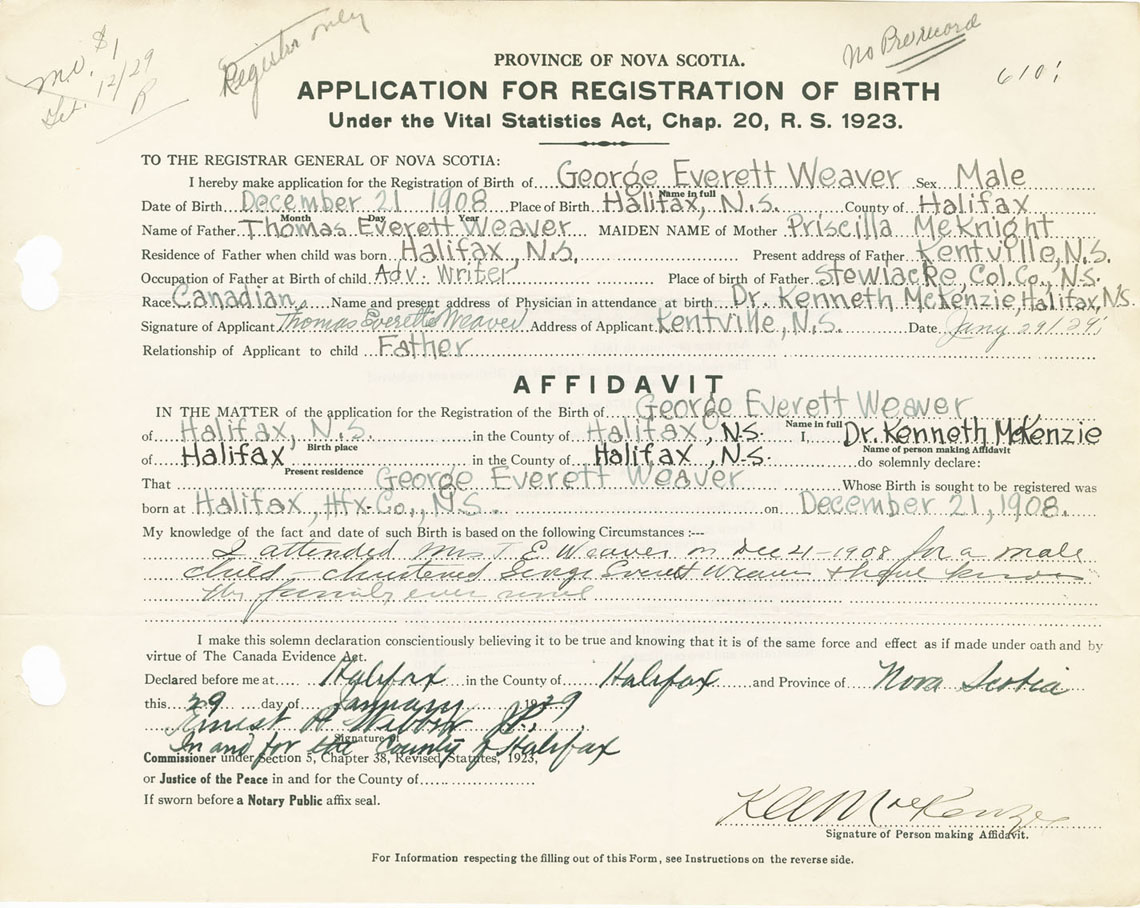 $1
12/29
Registrar only
No Pre record
PROVINCE OF NOVA SCOTIA.
APPLICATION FOR REGISTRATION OF BIRTH
Under the Vital Statistics Act, Chap. 20, R. S. 1923.
TO THE REGISTRAR GENERAL OF NOVA SCOTIA:
I hereby make application for the Registration of Birth of George Everett Weaver Sex Male
Name in full
Date of Birth December 21 1908 Place of Birth Halifax, N.S. County of Halifax
Month Day Year
Name of Father Thomas Everett Weaver MAIDEN NAME of Mother Priscilla McKnight
Residence of Father when child was born Halifax, N.S. Present address of Father Kentville, N.S.
Occupation of Father at Birth of child Adv. Writer Place of birth of Father Stewiacke, Col. Co., N.S.
Race Canadian Name and present address of Physician in attendance at birth Dr. Kenneth McKenzie, Halifax, N.S.
Signature of Applicant Thomas Everett Weaver Address of Applicant Kentville, N.S. Date Jany 29/29
Relationship of Applicant to child Father
AFFIDAVIT
IN THE MATTER of the application for the Registration of the Birth of George Everett Weaver
Name in full
of Halifax, N.S. in the County of Halifax, N.S. I, Dr. Kenneth McKenzie
Birth place Name of person making Affidavit
of Halifax in the County of Halifax, N.S. do solemnly declare:
Present residence
That George Everett Weaver Whose Birth is sought to be registered was
born at Halifax, Hfx. Co., N.S. on December 21, 1908.
My knowledge of the fact and date of such Birth is based on the following Circumstances :—
I attended Mrs T. E. Weaver on Dec 21-1908 for a male
child - christened George Everett Weaver & have known
the family ever since
I make this solemn declaration conscientiously believing it to be true and knowing that it is of the same force and effect as if made under oath and by
virtue of The Canada Evidence Act.
Declared before me at Halifax in the County of Halifax and Province of Nova Scotia
this 29 day of January 1929
Ernest H J.P.
Signature of
In and for the County of Halifax
Commissioner under Section 5, Chapter 38, Revised Statutes, 1923,
or Justice of the Peace in and for the County of
If sworn before a Notary Public affix seal.
K A MacKenzie
Signature of Person making Affidavit.
For Information respecting the filling out of this Form, see Instructions on the reverse side.